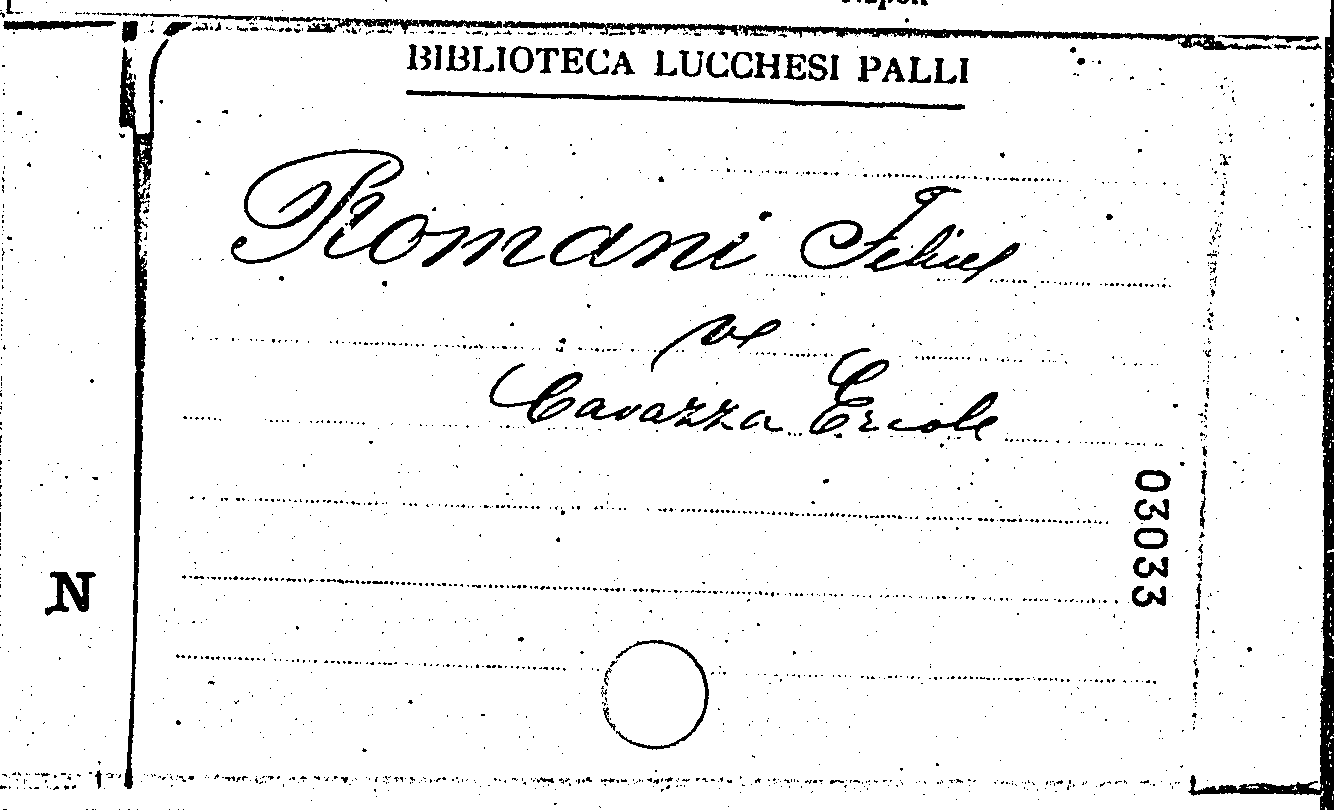 BIBLIOTECA LUCCHESI PALLI
Romani Felice
ve
Cavazza Ercole
03033
N